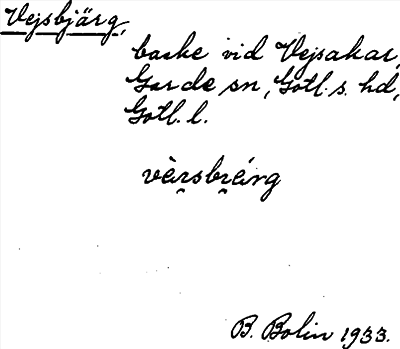 Vejsbjärg,
backe vid Vejsakar,
Garde sn, Gotl. s. hd,
Gotl. l.
vèi̯sbi̯árg
B. Bolin 1933.